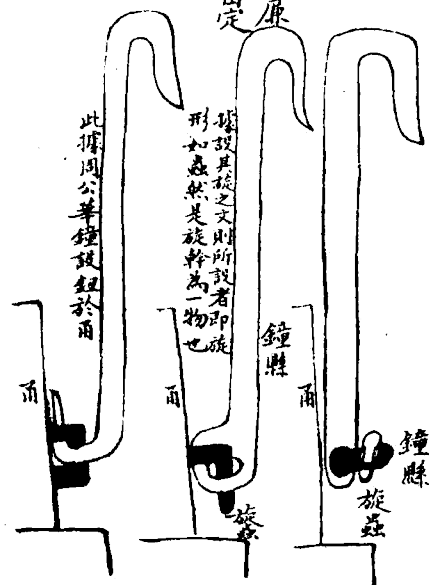 定
鐘縣
旋蟲
甬
據設其旋之文則所設者即旋
形如蟲然是旋幹為一物也
鐘縣
旋蟲
甬
此據周公華鐘設鈕於甬
甬